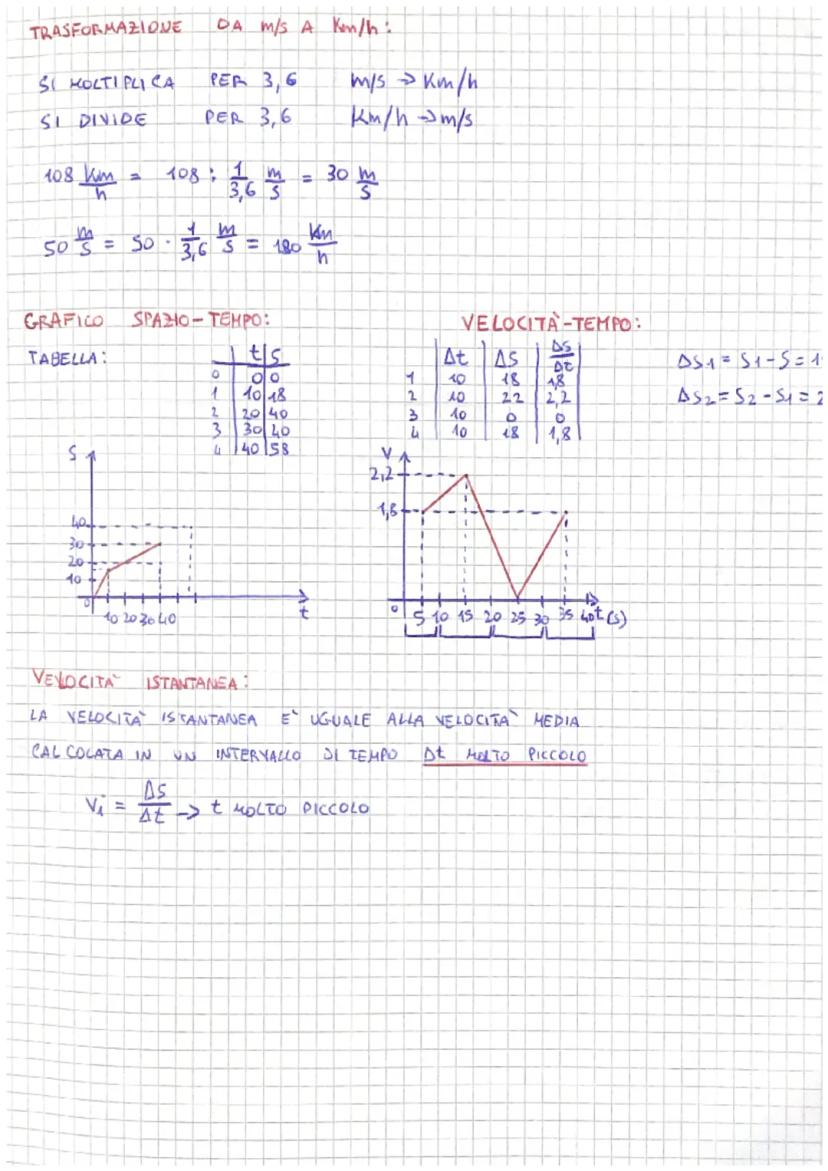 TRASFORMAZIONE DA m/s A Km/h:
SI MOLTIPLICA PER 3,6 m/s → Km/h
SI DIVIDE PER 3,6 Km/h → m/s
108 Km/h = 108 : 1/3,6 m/s = 30 m/s
50 m/s = 50 · 1/3,6 m/s = 180 Km/h
GRAFICO SPAZIO-TEMPO:
TABELLA:
t S
0 0 0
1 10 18
2 20 40
3 30 40
4 40 58
S
40
30
20
10
0
10 20 30 40
t
VELOCITÀ-TEMPO:
Δt ΔS ΔS/Δt
1 10 18 1,8
2 10 22 2,2
3 10 0 0
4 10 18 1,8
ΔS1 = S1 - S = 1
ΔS2 = S2 - S1 = 2
V
2,2
1,8
0 5 10 15 20 25 30 35 40 t (s)
VELOCITÀ ISTANTANEA:
LA VELOCITÀ ISTANTANEA E' UGUALE ALLA VELOCITÀ MEDIA
CALCOLATA IN UN INTERVALLO DI TEMPO Δt MOLTO PICCOLO
Vi = ΔS/Δt → t MOLTO PICCOLO